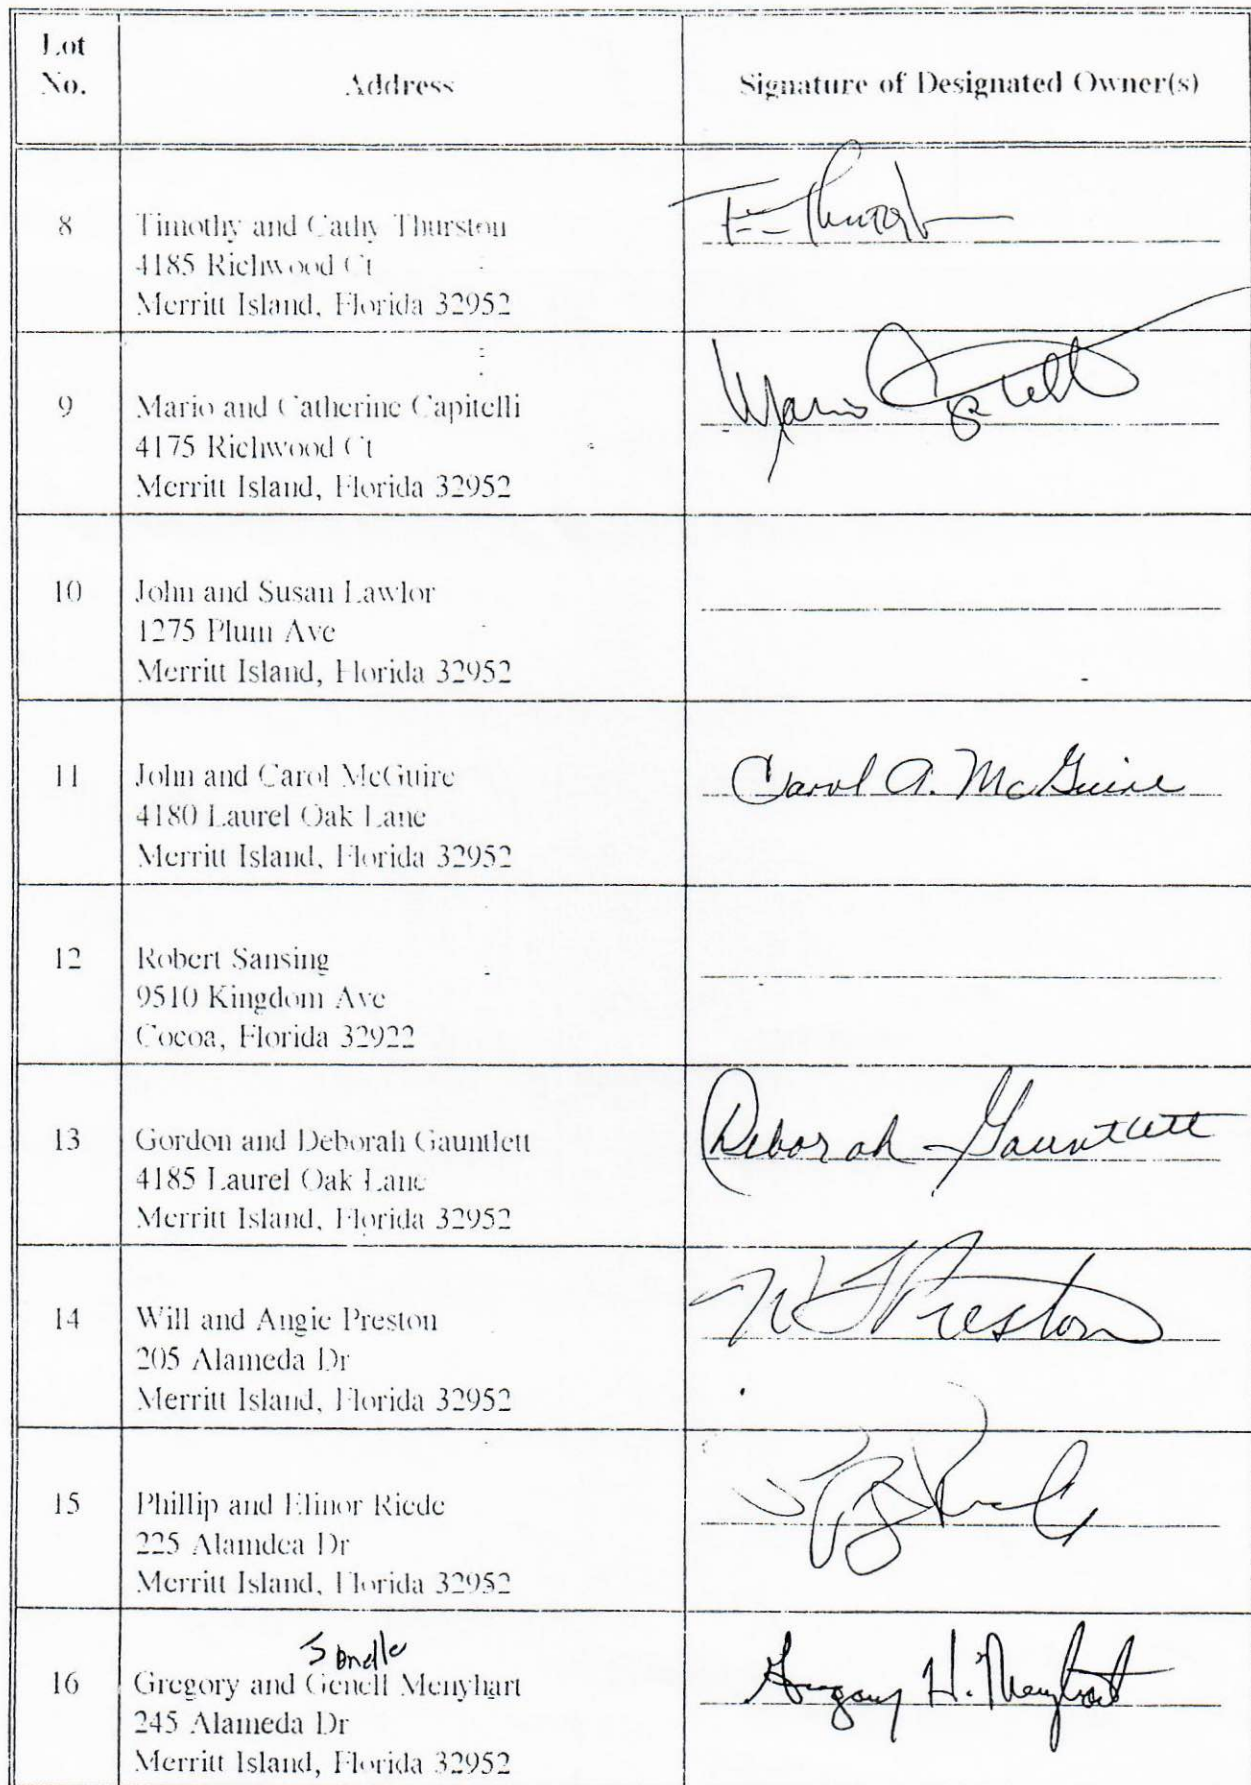 Lot
No.
Address
Signature of Designated Owner(s)
8
Timothy and Cathy Thurston
4185 Richwood Ct
Merritt Island, Florida 32952
9
Mario and Catherine Capitelli
4175 Richwood Ct
Merritt Island, Florida 32952
Mario Capitelli
10
John and Susan Lawlor
1275 Plum Ave
Merritt Island, Florida 32952
11
John and Carol McGuire
4180 Laurel Oak Lane
Merritt Island, Florida 32952
Carol A. McGuire
12
Robert Sansing
9510 Kingdom Ave
Cocoa, Florida 32922
13
Gordon and Deborah Gauntlett
4185 Laurel Oak Lane
Merritt Island, Florida 32952
Deborah Gauntlett
14
Will and Angie Preston
205 Alameda Dr
Merritt Island, Florida 32952
Preston
15
Phillip and Elinor Riede
225 Alamdea Dr
Merritt Island, Florida 32952
16
Gregory and Genell Menyhart
245 Alameda Dr
Merritt Island, Florida 32952
Gregory H. Menyhart